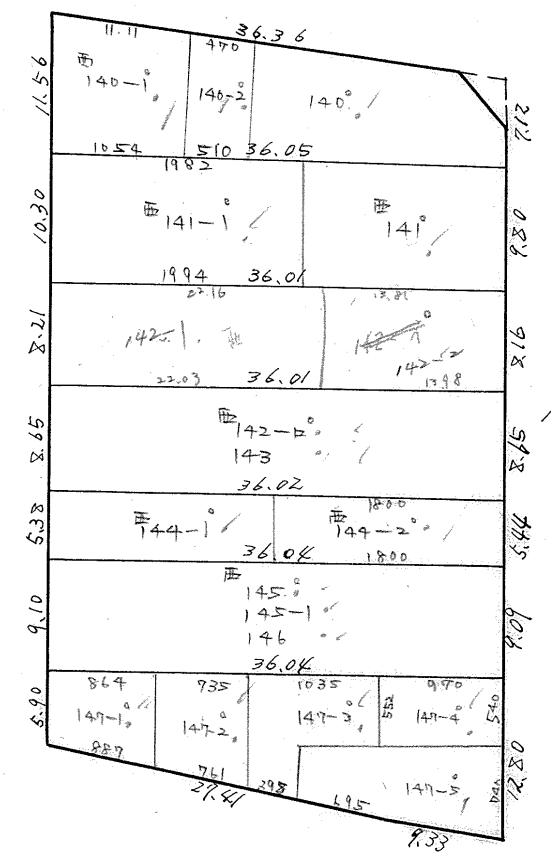 11.11
36.36
470
11.56
140-1
140-2
140
7.12
1054
510
36.05
1982
10.30
141-1
141
9.80
1994
36.01
22.16
13.81
8.21
142-1
8.16
22.03
36.01
1398
8.65
142-ロ
143
8.65
36.02
5.38
144-1
1800
144-2
5.44
36.04
1800
9.10
145
145-1
146
9.09
36.04
864
735
1035
970
5.90
147-1
147-2
147-3
552
147-4
540
887
761
298
147-5
12.80
27.41
695
9.33